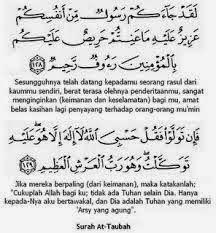 لَقَدْ جَاءَكُمْ رَسُولٌ مِنْ أَنْفُسِكُمْ
عَزِيزٌ عَلَيْهِ مَا عَنِتُّمْ حَرِيصٌ عَلَيْكُمْ
بِالْمُؤْمِنِينَ رَءُوفٌ رَحِيمٌ ﴿١٢٨﴾
Sesungguhnya telah datang kepadamu seorang rasul dari
kaummu sendiri, berat terasa olehnya penderitaanmu, sangat
menginginkan (keimanan dan keselamatan) bagi mu, amat
belas kasihan lagi penyayang terhadap orang-orang mu'min
فَإِنْ تَوَلَّوْا فَقُلْ حَسْبِيَ اللَّهُ لَا إِلَهَ إِلَّا هُوَ عَلَيْهِ
تَوَكَّلْتُ وَهُوَ رَبُّ الْعَرْشِ الْعَظِيمِ ﴿١٢٩﴾
Jika mereka berpaling (dari keimanan), maka katakanlah;
"Cukuplah Allah bagi ku; tidak ada Tuhan selain Dia. Hanya
kepada-Nya aku bertawakal, dan Dia adalah Tuhan yang memiliki
'Arsy yang agung".
Surah At-Taubah